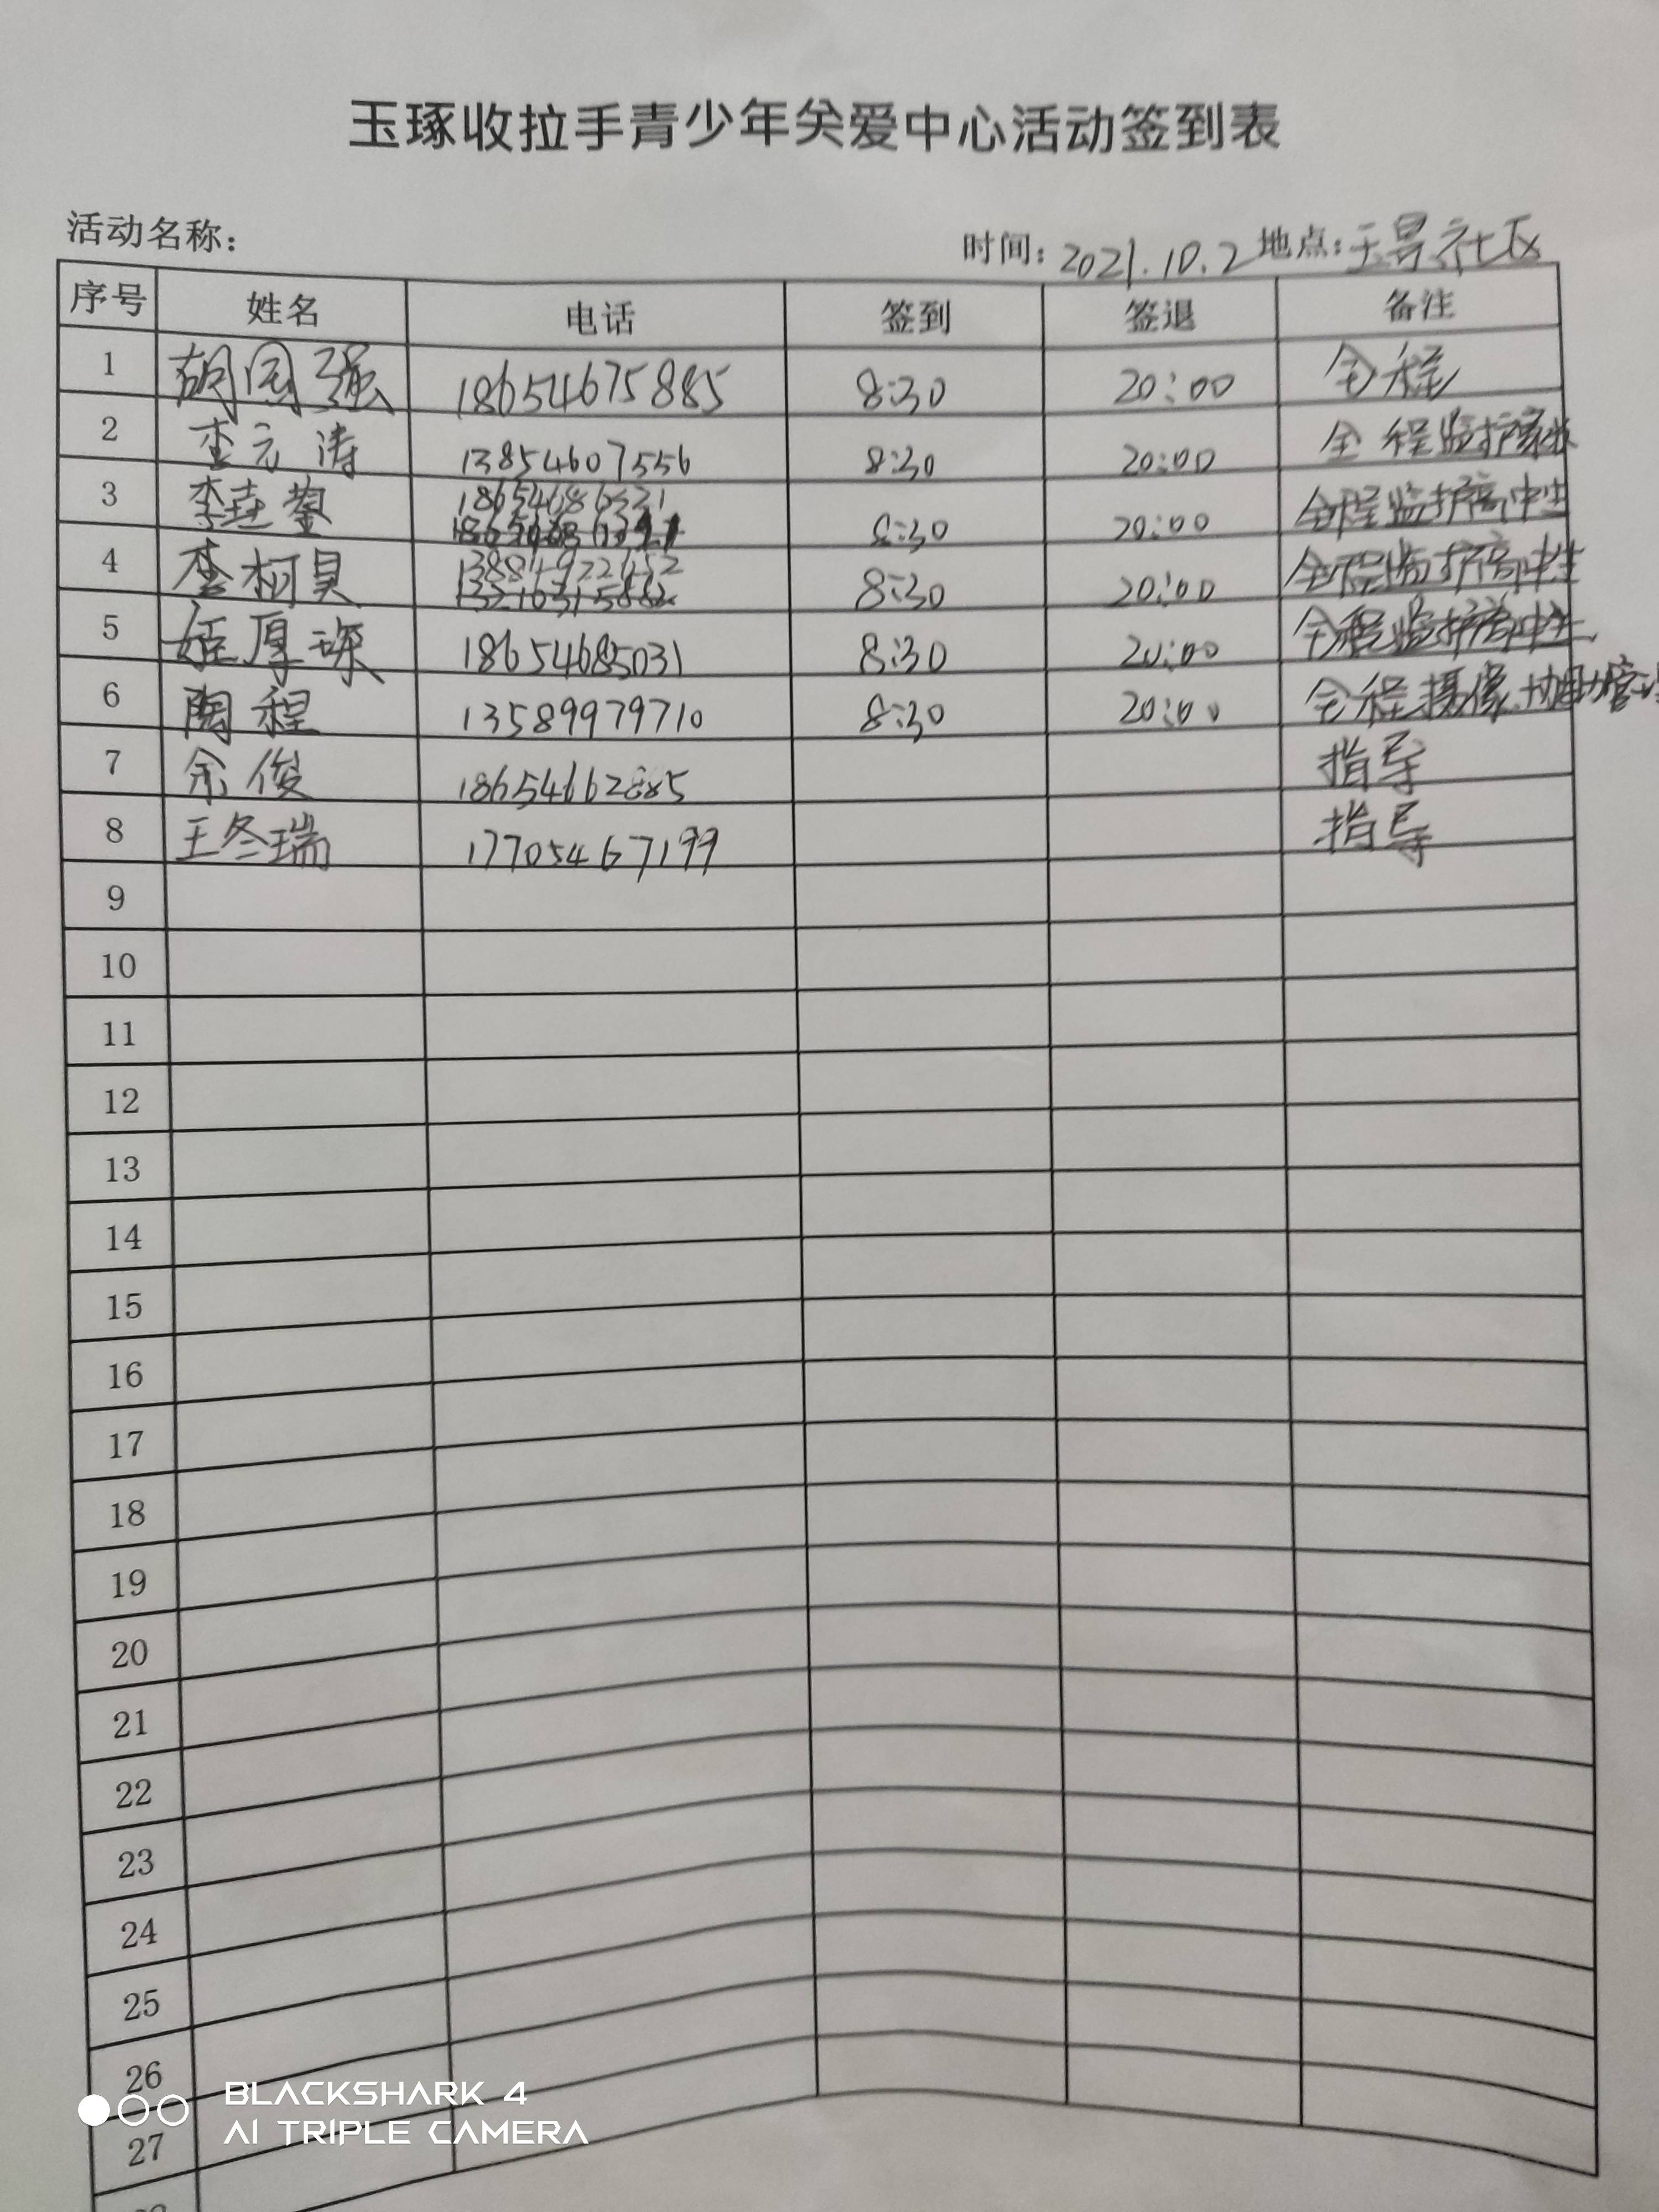 玉琢收拉手青少年关爱中心活动签到表
活动名称： 时间：2021.10.2 地点：玉景社区
序号 姓名 电话 签到 签退 备注
1 胡国强 18654675885 8:30 20:00 全程
2 李元涛 13854607556 8:30 20:00 全程监护
3 李 18654686321 8:30 20:00 全程监护高中生
4 李柯 8:30 20:00 全程监护高中生
5 姬厚琛 18654685031 8:30 20:00 全程监护高中生
6 陶程 13589979710 8:30 20:00 全程摄像.协助管理
7 余俊 18654662885 指导
8 王冬瑞 17705467199 指导
9
10
11
12
13
14
15
16
17
18
19
20
21
22
23
24
25
26
27
BLACKSHARK 4
AI TRIPLE CAMERA